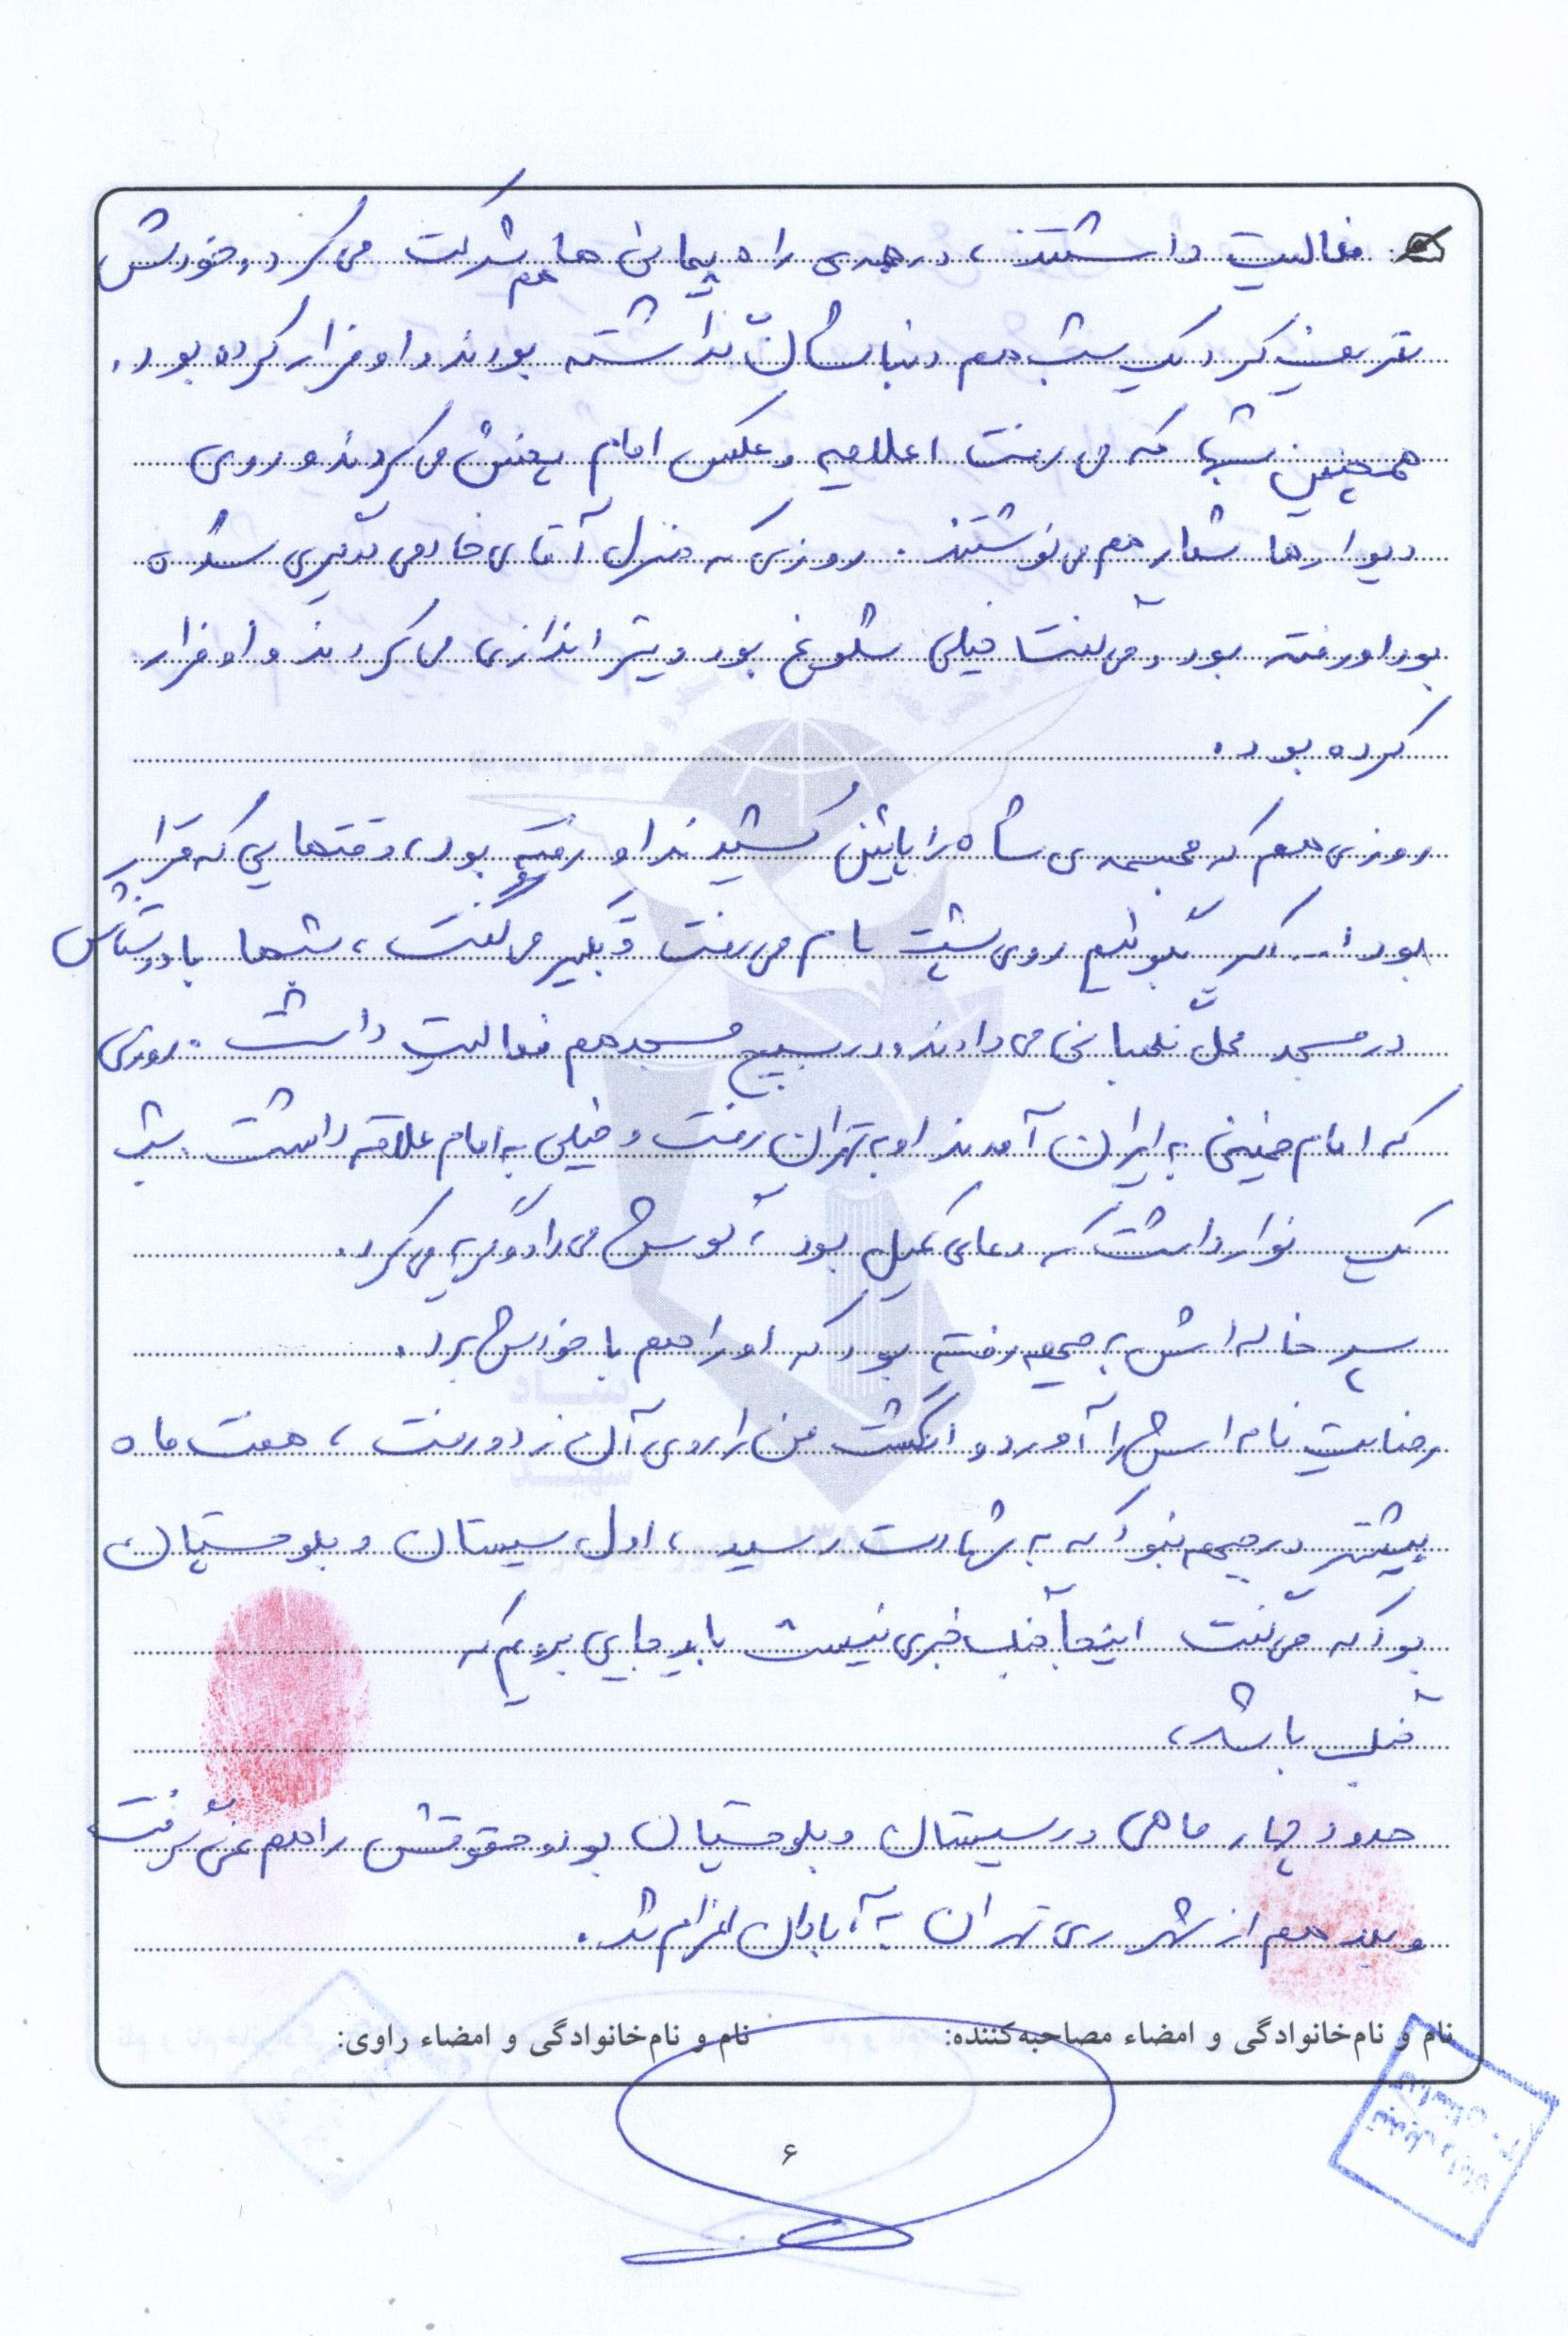 فعالیت داشتند، در همه‌ی راه پیمائی ها هم شرکت می کرد، خودش
تعریف کرد یک شب هم دنبالشان گذاشته بودند و او فرار کرده بود.
همچنین شبها که می رفت اعلامیه و عکس امام پخش می کردند و روی
دیوارها شعار هم می نوشتند. روزی که منزل آقای خادمی درگیری شده
بود او رفته بود و می گفت خیلی شلوغ بود و تیراندازی می کردند و او فرار
کرده بود.
روزی هم که مجسمه‌ی شاه را پائین کشیدند او رفته بود، وقتهایی که قرار
بود ا... اکبر بگوئیم روی پشت بام می رفت و تکبیر می گفت، شبها با دوستانش
در مسجد محل نگهبانی می دادند و در بسیج مسجد هم فعالیت داشت. روزی
که امام خمینی به ایران آمدند او به تهران رفت و خیلی به امام علاقه داشت. شب
یک نوار داشت که دعای کمیل بود، گوش می داد و گریه می کرد.
پسر خاله اش به جبهه رفته بود که او را هم با خودش برد.
رضایت نامه اش را آورد و انگشت من را روی آن زد و رفت، هفت ماه
بیشتر در جبهه نبود که به شهادت رسید، اول سیستان و بلوچستان
بود که می گفت اینجا جنگ خبری نیست باید جایی برویم که
جنگ باشد،
حدود چهار ماهی در سیستان و بلوچستان بود و حقوقش را هم نمی گرفت
و بعد هم از شهر ری تهران به آبادان اعزام شد.
نام و نام‌خانوادگی و امضاء مصاحبه‌کننده: نام و نام‌خانوادگی و امضاء راوی:
۶